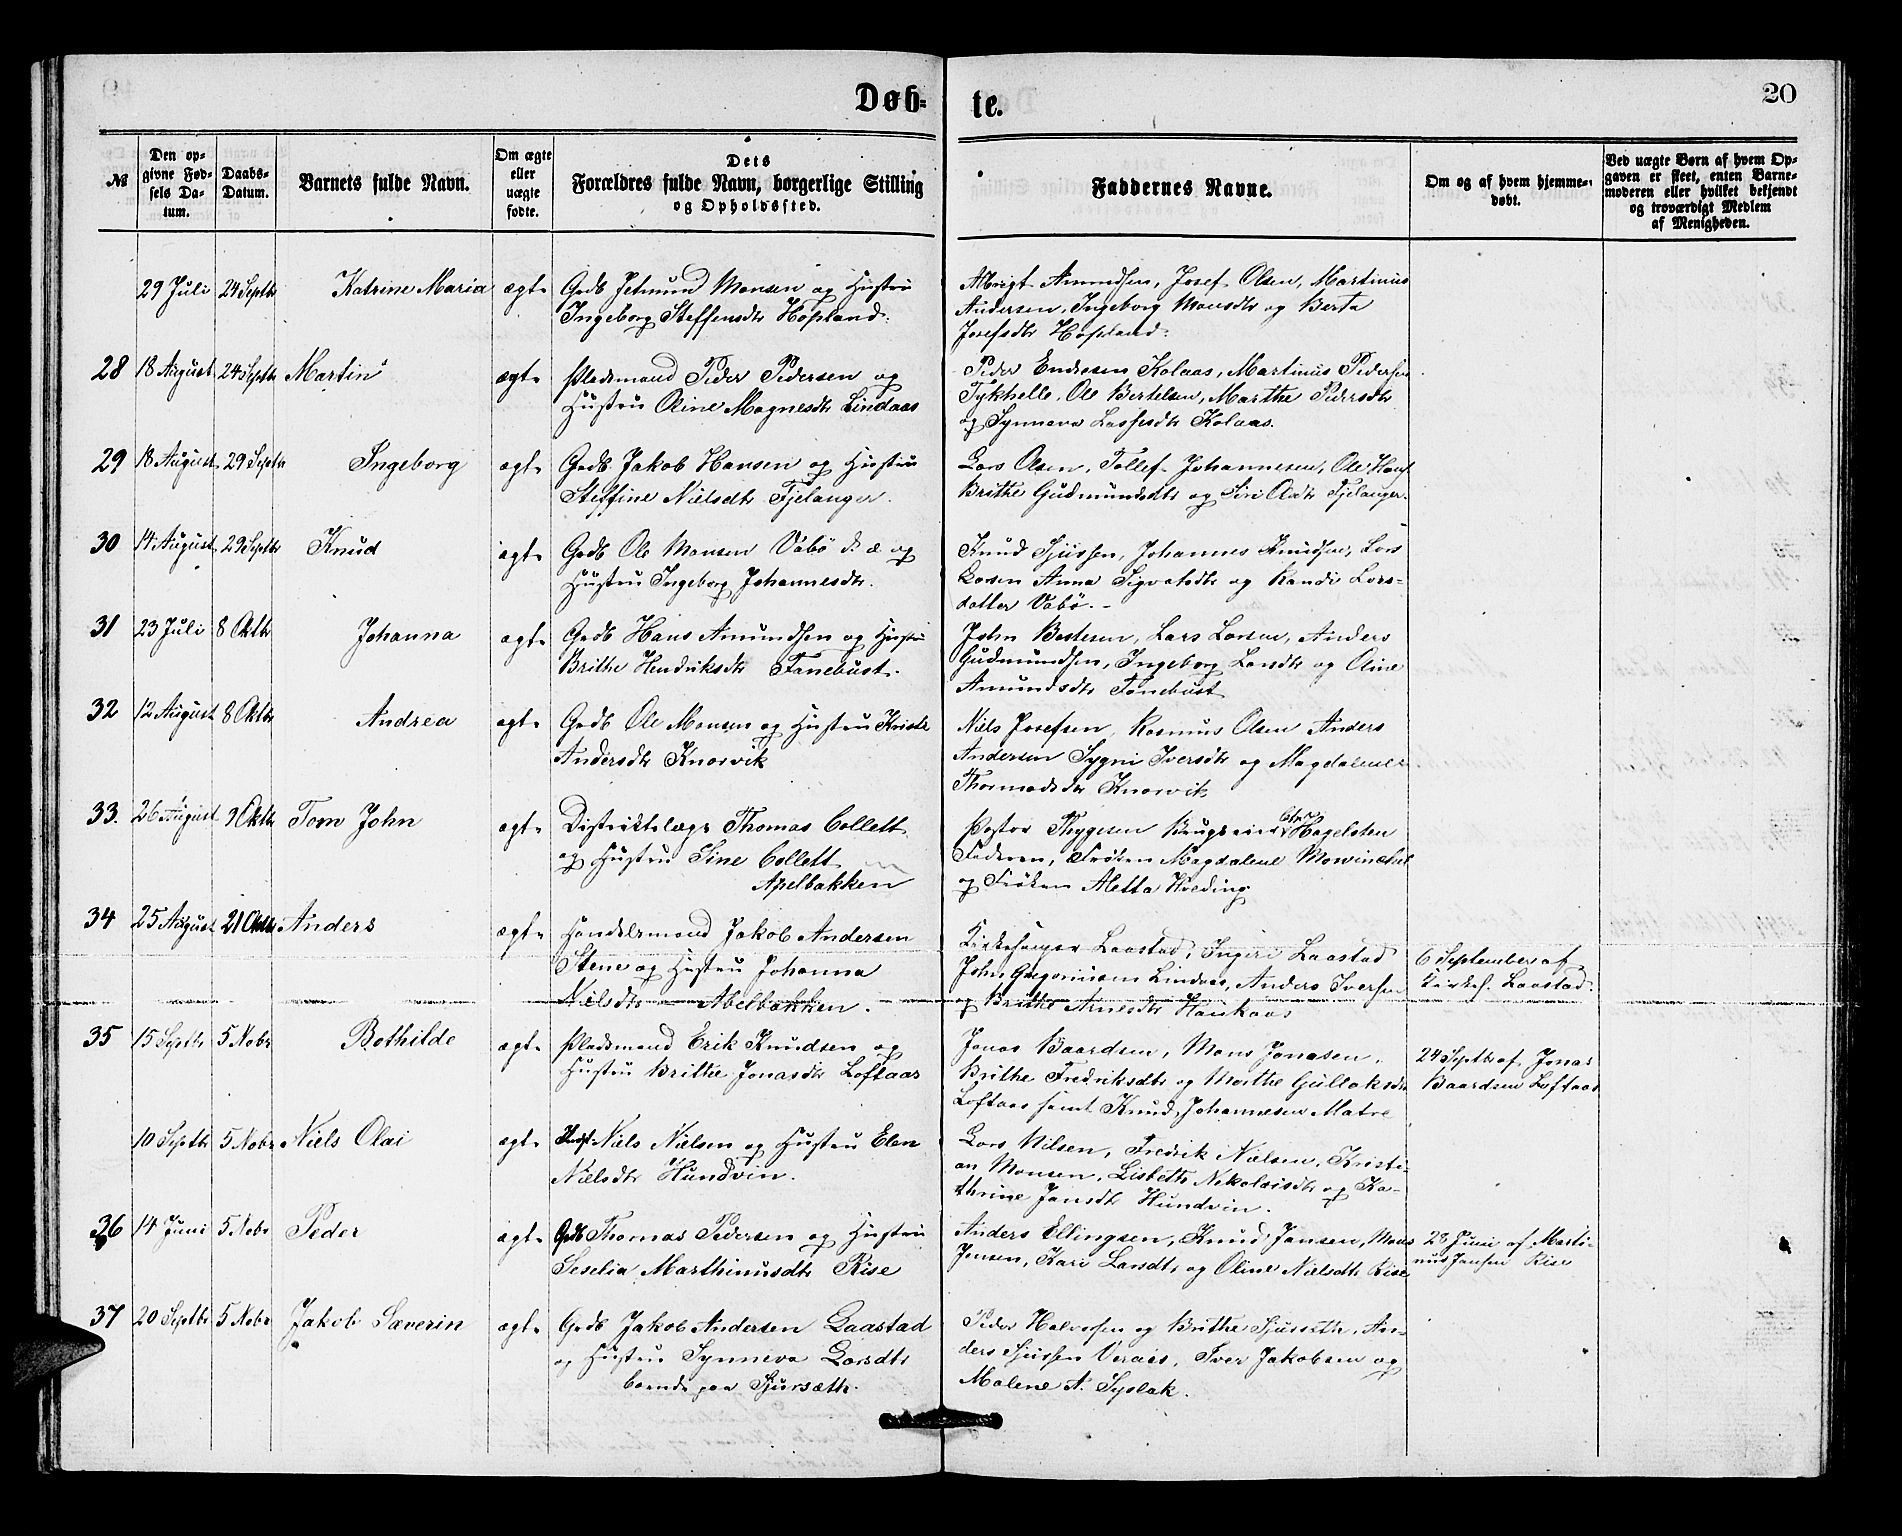 Døb-
te.
20
№
Den op-
givne Fød-
sels Da-
tum.
Daabs-
Datum.
Barnets fulde Navn.
Om ægte
eller
uægte
fødte.
Dets
Forældres fulde Navn, borgerlige Stilling
og Opholdssted.
Faddernes Navne.
Om og af hvem hjemme-
døbt.
Ved uægte Børn af hvem Op-
gaven er skeet, enten Barne-
moderen eller hvilket bekjendt
og troværdigt Medlem
af Menigheden.
29 Juli 24 Septbr Katrine Maria ægte
Grdb Jetmund Monsen og Hustru
Ingeborg Steffensdtr Hopland.
Amundsen, Josef Olsen, Martinus
Andersen, Ingeborg Monsdtr og Berta
Josefsdtr Hopland.
28 18 August 24 Septbr Martin ægte
Pladsmand Peder Pedersen og
Hustru Oline Magnesdtr Lindaas
Peder Endresen Kolaas, Martinus Pedersen
Tykhelle, Ole Bertelsen, Marthe Pedersdtr
og Synneva Lassesdtr Kolaas.
29 18 August 29 Septbr Ingeborg ægte
Grdb Jakob Hansen og Hustru
Steffine Nielsdtr Fjelanger.
Lars Olsen, Tollef Johannesen, Ole Hans
Brithe Gudmundsdtr og Siri Olsdtr Fjelanger.
30 14 August 29 Septbr Knud ægte
Grdb Ole Monsen Vabø d. æ og
Hustru Ingeborg Johannesdtr.
Knud Sjursen, Johannes Knudsen, Lars
Larsen Anna Sigvatsdtr og Randi Lars-
datter Vabø.
31 23 Juli 8 Oktbr Johanna ægte
Grdb Hans Amundsen og Hustru
Brithe Hendriksdtr Fanebust.
John Bertesen, Lars Larsen, Anders
Gudmundsen, Ingeborg Larsdtr og Oline
Amundsdtr Fanebust
32 12 August 8 Oktbr Andrea ægte
Grdb Ole Monsen og Hustru Kristi
Andersdtr Knarvik
Niels Josefsen, Rasmus Olsen Anders
Andersen Sygni Iversdtr og Magdalene
Thormodsdtr Knarvik
33. 26 August 9 Oktbr Tom John ægte
Distriktslæge Thomas Collett
og Hustru Sine Collett
Apelbakken
Pastor Thygesen Hagelsten
Faderen, Frøken Magdalene Mowinckel
og Frøken Aletta Hvoding
34 25 August 21 Oktbr Anders ægte
Handelsmand Jakob Andersen
Stene og Hustru Johanna
Nielsdtr Abelbakken.
Kirkesanger Laastad, Ingeri Laastad
John Gregoriusen Lindaas, Anders Iversen
og Brithe Arnesdtr Haukaas
6 September af
Kirkes. Laastad.
35 15 Septbr 5 Nobr Bothilde ægte
Pladsmand Erik Knudsen og
Hustru Brithe Jonasdtr Loftaas
Jonas Baardsen, Mons Jonasen,
Brithe Fredriksdtr og Marthe Gullaksdtr
Loftaas samt Knud Johannesen Matre
24 Septbr af Jonas
Baardsen Loftaas
10 Septbr 5 Nobr Niels Olai ægte
Niels Nielsen og Hustru Elen
Nielsdtr Hundvin.
Lars Nilsen, Fredrik Nielsen, Kristi-
an Monsen, Lisbeth Nekolaisdtr og Ka-
thrine Jansdtr Hundvin.
36 14 Juni 5 Nobr Peder ægte
Grdb Thomas Pedersen og Hustru
Seselia Marthinusdtr Rise
Anders Ellingsen, Knud Jansen, Mons
Jensen, Kari Larsdtr og Oline Nielsdtr Rise
28 Juni af Marti-
nus Jansen Rise
37 20 Septbr 5 Nobr Jakob Severin ægte
Grdb Jakob Andersen Laastad
og Hustru Synneva Larsdtr
boende paa Sjursæth.
Peder Halvorsen og Brithe Sjursæth, An-
ders Sjursen Veraas, Iver Jakobsen og
Malene A. Syslak.